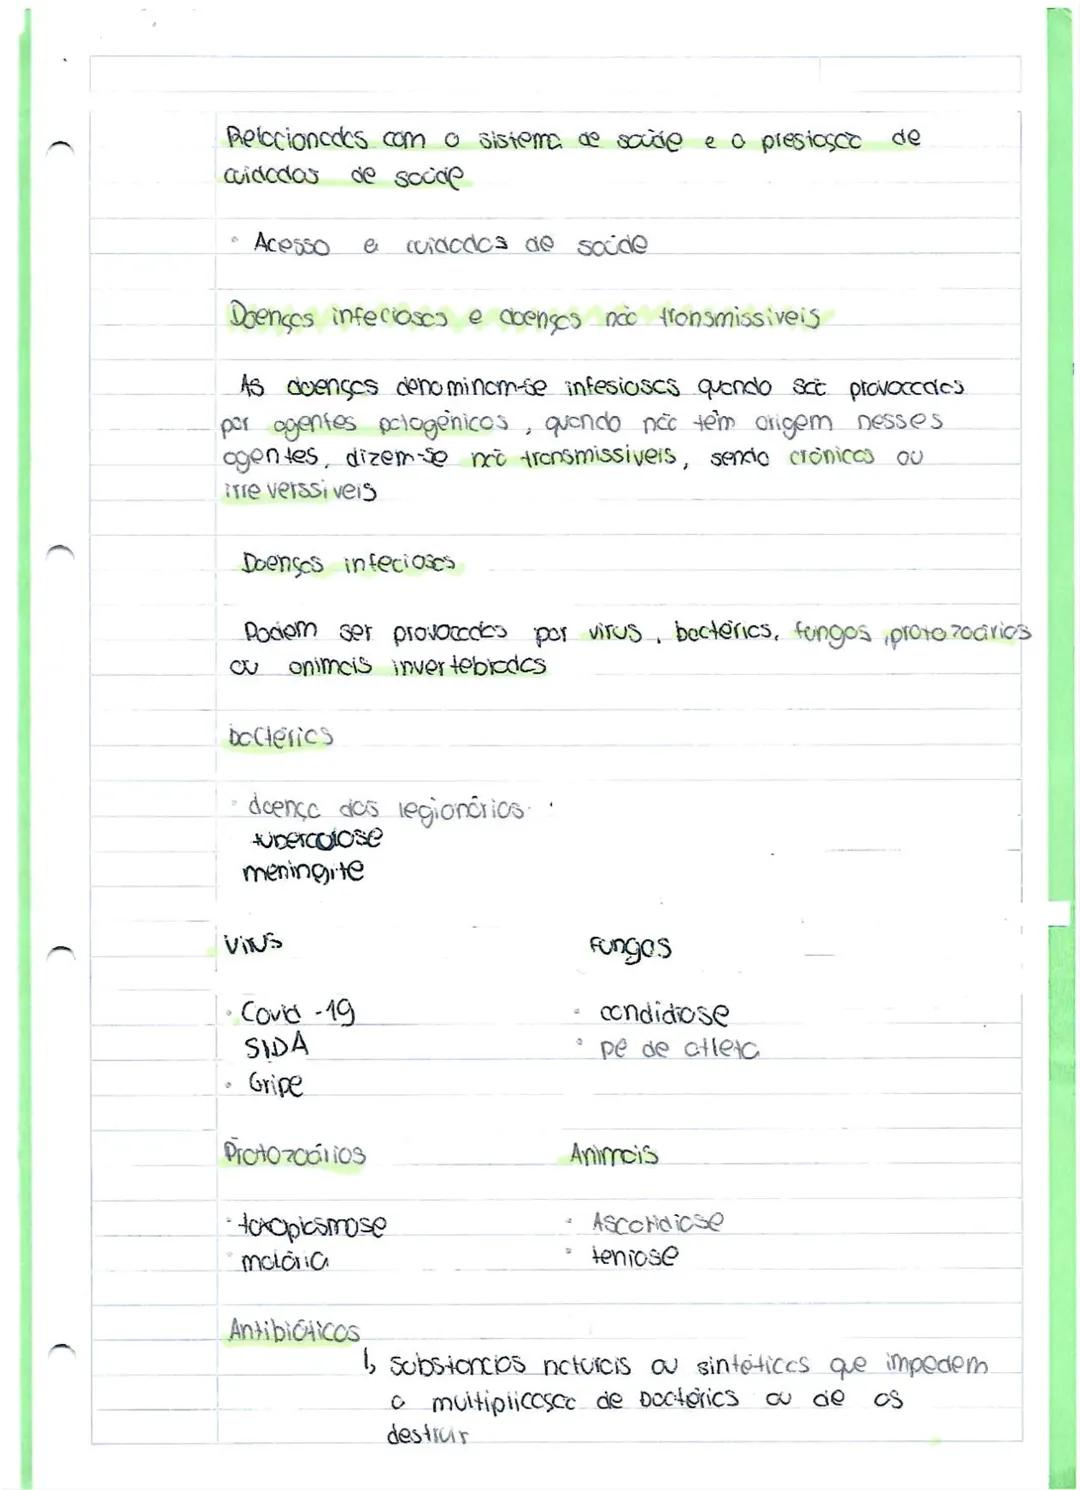 Relacionadas com o sistema de saúde e a prestaçao de
cuidados de saúde
• Acesso e cuidados de saúde
Doenças infeciosas e doenças não transmissiveis
As doenças denominam-se infesiosas quando são provocadas
por agentes patogênicos, quando não têm origem nesses
agentes, dizem-se não transmissiveis, sendo crônicas ou
irreverssiveis
Doenças infeciosas
Podem ser provocadas por virus, bactérias, fungos, protozoários
ou animais invertebrados
bactérias
• doença dos legionários
tuberculose
meningite
Virus
Fungos
• Covid -19
SIDA
• Gripe
• candidiose
• pé de atleta
Protozoários
Animais
• toxoplasmose
• malária
• Ascaridiose
• teniose
Antibióticos
↳ substancias naturais ou sintéticas que impedem
a multiplicasçao de bactérias ou de as
destruir